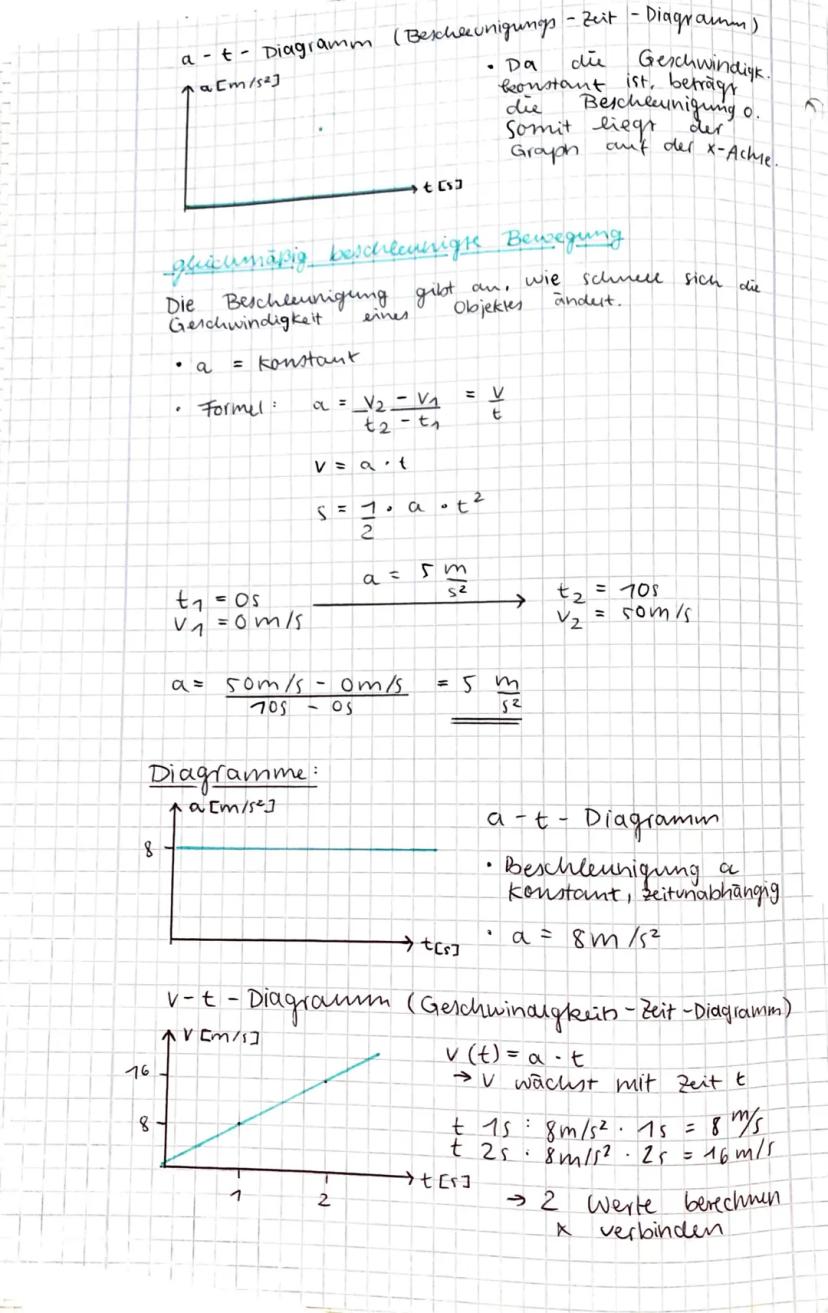 a - t - Diagramm (Beschleunigungs - Zeit - Diagramm)
a [m/s²]
t [s]
• Da die Geschwindigk.
konstant ist, beträgt
die Beschleunigung 0.
Somit liegt der
Graph auf der x-Achse.
gleichmäßig beschleunigte Bewegung
Die Beschleunigung gibt an, wie schnell sich die
Geschwindigkeit eines Objektes ändert.
• a = konstant
• Formel: a = (v₂ - v₁)/(t₂ - t₁) = v/t
v = a · t
s = 1/2 · a · t²
a = 5 m/s²
t₁ = 0s
v₁ = 0 m/s
t₂ = 10s
v₂ = 50 m/s
a = (50 m/s - 0 m/s)/(10s - 0s) = 5 m/s²
Diagramme:
a [m/s²]
8
t [s]
a - t - Diagramm
• Beschleunigung a
konstant, zeitunabhängig
• a = 8 m/s²
v - t - Diagramm (Geschwindigkeits - Zeit - Diagramm)
v [m/s]
16
8
1
2
t [s]
v (t) = a · t
→ v wächst mit Zeit t
t 1s : 8 m/s² · 1s = 8 m/s
t 2s : 8 m/s² · 2s = 16 m/s
→ 2 Werte berechnen
& verbinden